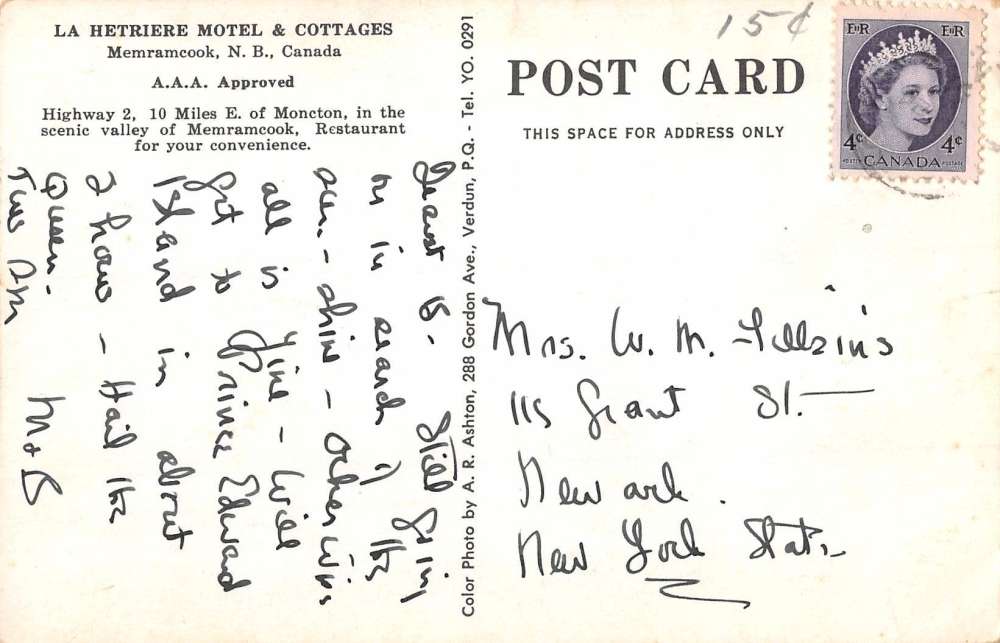 LA HETRIERE MOTEL & COTTAGES
Memramcook, N. B., Canada
A.A.A. Approved
Highway 2, 10 Miles E. of Moncton, in the
scenic valley of Memramcook, Restaurant
for your convenience.
August 18. Still going
on in search of the
sun - shine - otherwise
all is fine - Will
get to Prince Edward
Island in about
2 hours - Hail the
Queen.
M & B
Color Photo by A. R. Ashton, 288 Gordon Ave., Verdun, P.Q. - Tel. YO. 0291
15¢
POST CARD
THIS SPACE FOR ADDRESS ONLY
EIIR EIIR
4¢ 4¢
POSTES CANADA POSTAGE
Mrs. W. M.
115 Grant St.
Newark.
New York State